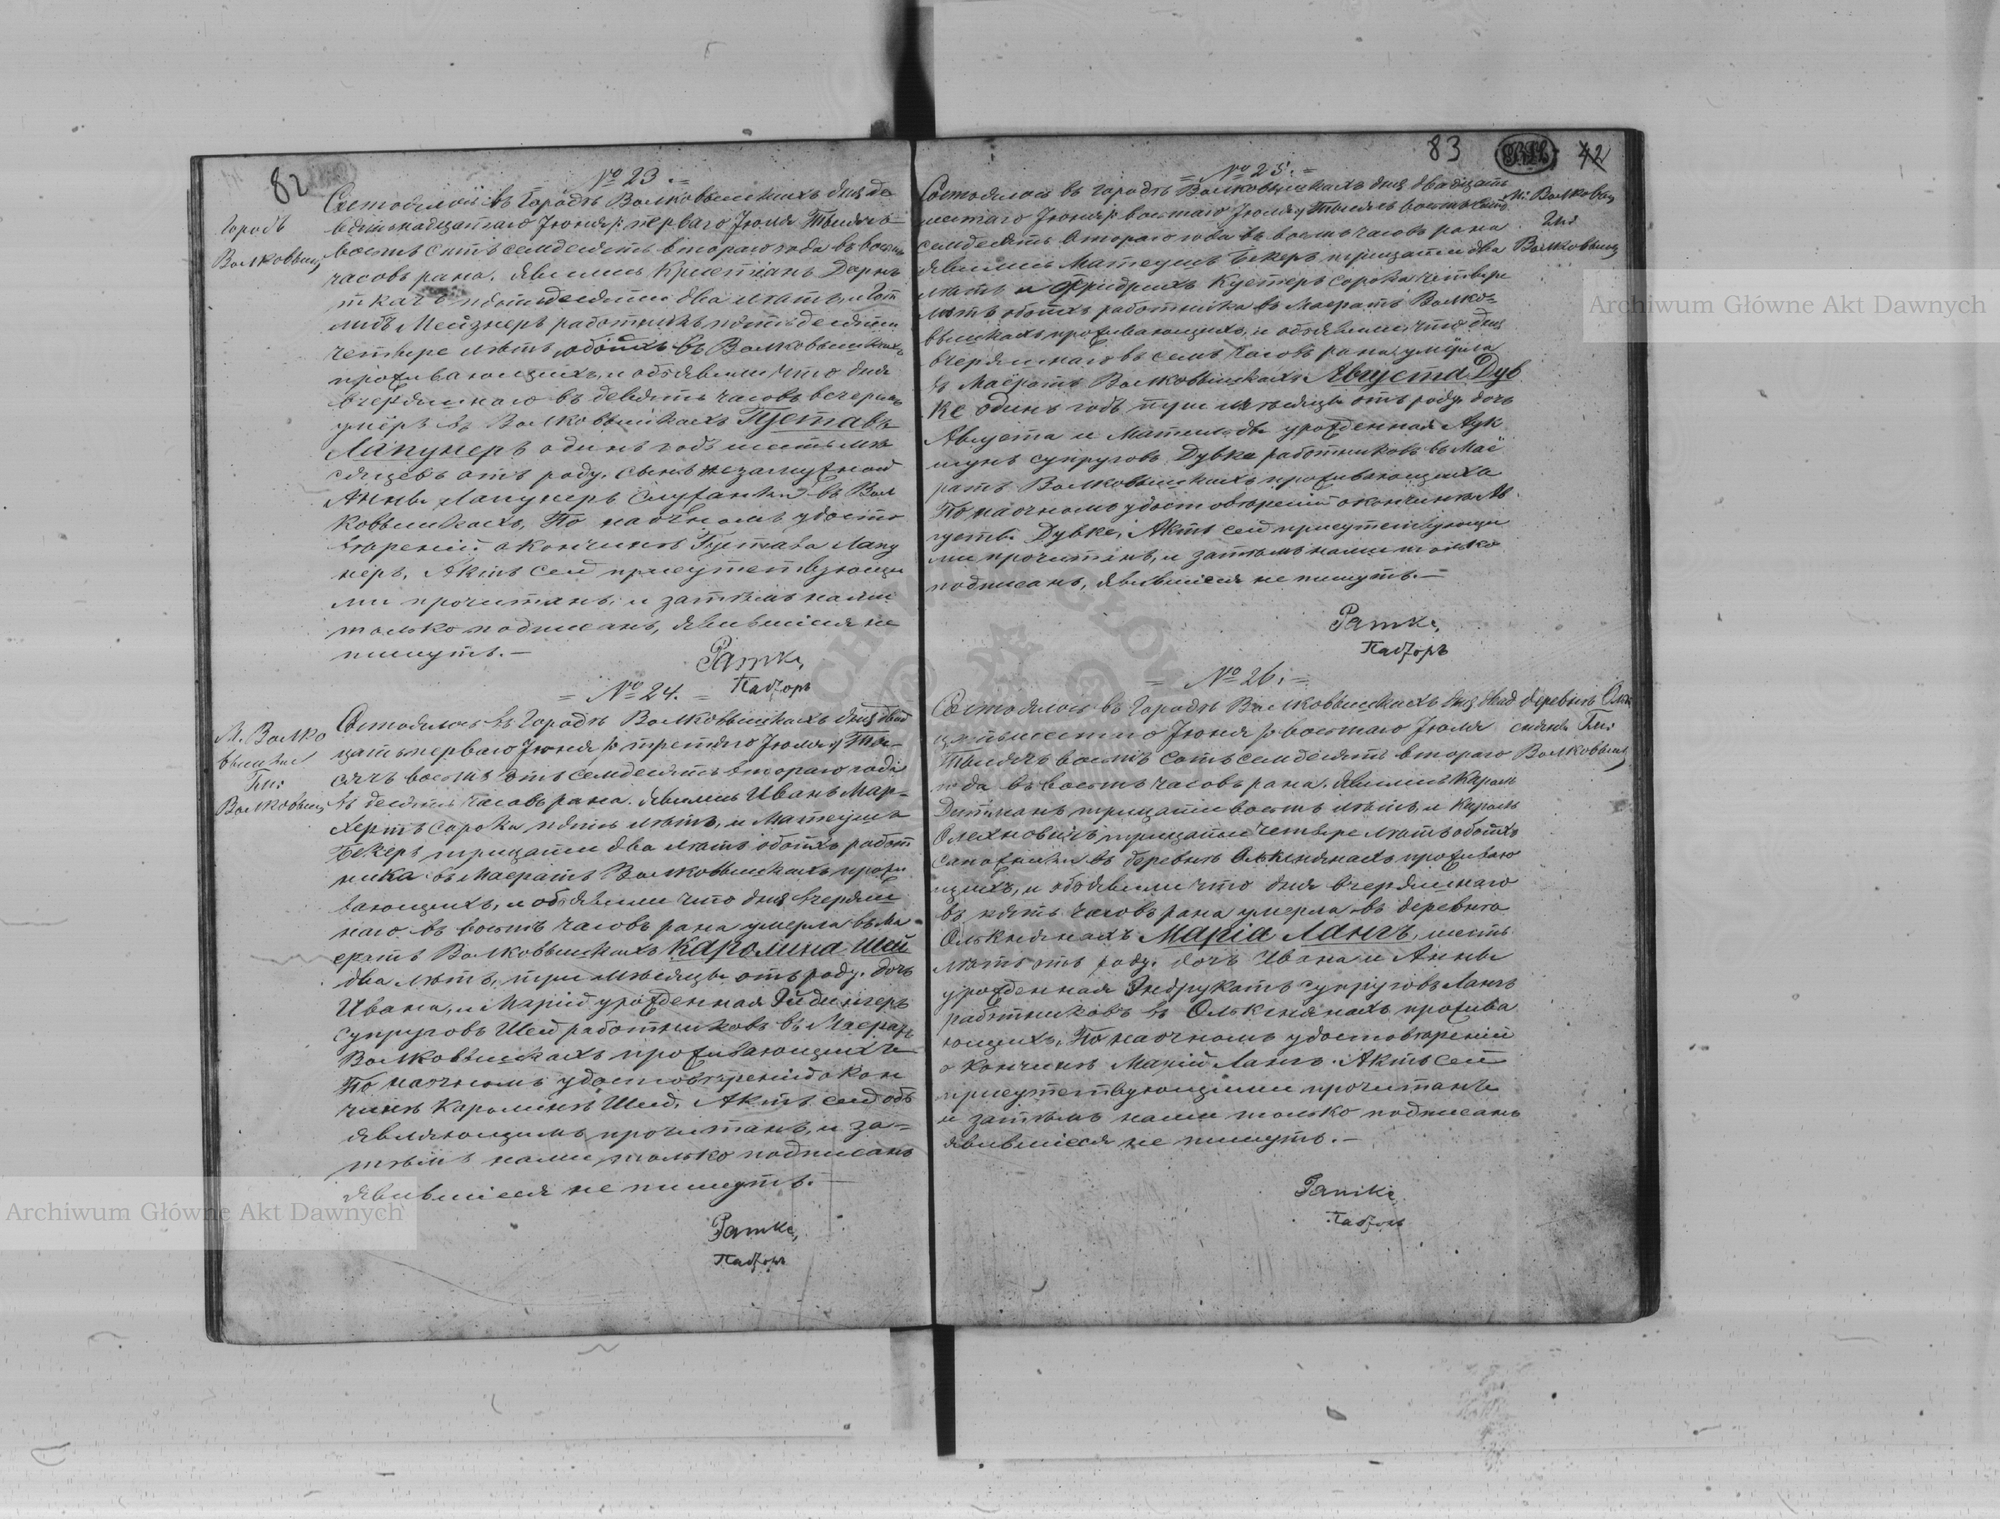 82
№ 23.
Городъ
Волковыш
Состоялось въ Городѣ Волковышкахъ дня де
вятнадцатаго Іюня / перваго Іюля Тысяча
восемь сотъ семдесятъ втораго года въ восемь
часовъ рана. Явились Христіанъ
ткачъ пятидесяти два лѣтъ, и Гот
либъ Мейзнеръ работникъ пятьдесяти
четыре лѣтъ, обоихъ въ Волковышкахъ
проживающихъ, и объявили что дня
вчерашнаго въ девять часовъ вечеромъ
умеръ въ Волковышкахъ Густавъ
Лапунеръ одинъ годъ шесть мѣ
сяцевъ отъ роду, сынъ незамужной
Анны Лапунеръ служанки въ Вол
ковышкахъ, По наочномъ удосто
вѣреніи о кончинѣ Густава Лапу
неръ, Актъ сей присутствующи
ми прочитанъ, и затѣмъ нами
только подписанъ, явившіеся не
пишутъ.—
Ратке,
Пасторъ
= № 24. =
М. Волко
вышки
Гм:
Волковыш
Состоялось въ Городѣ Волковышкахъ дня двад
цать перваго Іюня / третяго Іюля / Тыся-
сячъ восемь сотъ семдесятъ втораго года
въ десять часовъ рана. Явились Иванъ Мар-
хертъ сорока пять лѣтъ, и Матеушъ
Бекеръ тридцати два лѣтъ обоихъ работ
ника въ Маератѣ Волковышкахъ прожи
вающихъ, и объявили что дня вчераш
наго въ восемь часовъ рана умерла въ Ма
ератѣ Волковышкахъ Каролина Шей
два лѣтъ, три мѣсяцы отъ роду, дочь
Ивана, и Маріи урожденная Эйдингеръ
супруговъ Шей работниковъ въ Маератѣ
Волковышкахъ проживающихъ
По наочномъ удостовѣреніи о кон
чинѣ Каролинѣ Шей, Актъ сей объ
являющимъ прочитанъ, и за=
тѣмъ нами только подписанъ
явившіеся не пишутъ.—
Ратке,
Пасторъ
83
42
= № 25. =
М. Волковыш
Гм:
Волковыш
Состоялось въ Городѣ Волковышкахъ дня двадцать
шестаго Іюня / восмаго Іюля / Тысяча восемь сотъ
семдесятъ втораго года въ восемь часовъ рана
Явились Матеушъ Бекеръ тридцати два
лѣтъ и Фридрихъ Кустеръ сорока четыре
лѣтъ обоихъ работника въ Маератѣ Волко=
вышкахъ проживающихъ, и объявили, что дня
вчерашнаго въ семь часовъ рана умерла
въ Маератѣ Волковышкахъ Августа Дуб
ке одинъ годъ три мѣсяцы отъ роду, дочь
Августа и Матильды урожденная Лук
супруговъ Дубке работниковъ въ Мае
ратѣ Волковышкахъ проживающихъ
По наочномъ удостовѣреніи о кончинѣ Ав
густы Дубке, Актъ сей присутствующи
ми прочитанъ, и затѣмъ нами только
подписанъ, явившіеся не пишутъ.—
Ратке,
Пасторъ
= № 26. =
деревня Оль
княны Гм:
Волковыш
Состоялось въ Городѣ Волковышкахъ дня двад
цать шестаго Іюня / восмаго Іюля
Тысячъ восемь сотъ семдесятъ втораго
года въ восемь часовъ рана. Явились Кароль
Дитманъ тридцати восемь лѣтъ, и Кароль
Олехновичъ тридцати четыре лѣтъ обоихъ
сапожники въ деревнѣ Олькнянахъ проживаю
щихъ, и объявили что дня вчерашнаго
въ пять часовъ рана умерла въ деревнѣ
Олькнянахъ Марія Лангъ, шесть
лѣтъ отъ роду, дочь Ивана и Анны
урожденная Эндрукатъ супруговъ Лангъ
работниковъ въ Олькнянахъ прожива
ющихъ, По наочномъ удостовѣреніи
о кончинѣ Маріи Лангъ. Актъ сей
присутствующими прочитанъ
и затѣмъ нами только подписанъ
явившіеся не пишутъ.—
Ратке,
Пасторъ
Archiwum Główne Akt Dawnych
Archiwum Główne Akt Dawnych